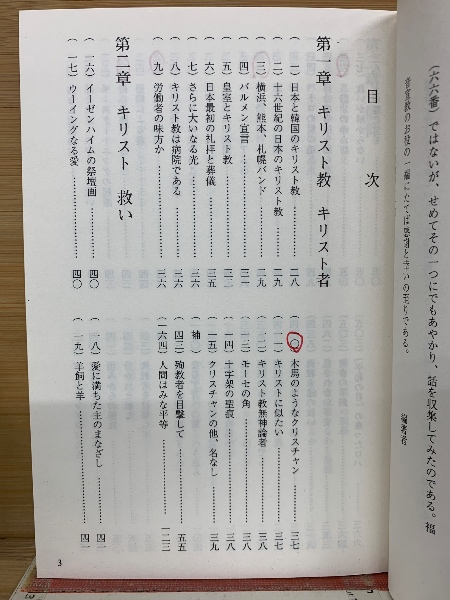 (六六番)ではないが、せめてその一つにでもあやかり、話を収集してみたのである。福
音宣教のお役の一端にたてば感謝と幸いの至りである。
編著者
目次
第一章 キリスト教 キリスト者
(一)日本と韓国のキリスト教…………二八
(二)十六世紀の日本のキリスト教…………二九
(三)横浜、熊本、札幌バンド…………二九
(四)バルメン宣言…………三一
(五)皇室とキリスト教…………三二
(六)日本最初の礼拝と葬儀…………三五
(七)さらに大いなる光…………三六
(八)キリスト教は病院である…………三六
(九)労働者の味方か…………三六
(一〇)木馬のようなクリスチャン…………三七
(一一)キリストに似たい…………三七
(一二)キリスト教無神論者…………三八
(一三)モーセの角…………三八
(一四)十字架の聖痕…………三八
(一五)クリスチャンの他、名なし…………三九
(補)
(四三)殉教者を目撃して…………五五
(一六四)人間はみな平等…………一二三
第二章 キリスト 救い
(一六)イーゼンハイムの祭壇画…………四〇
(一七)ウーイングなる愛…………四〇
(一八)愛に満ちた主のまなざし…………四一
(一九)羊飼と羊…………四一
3